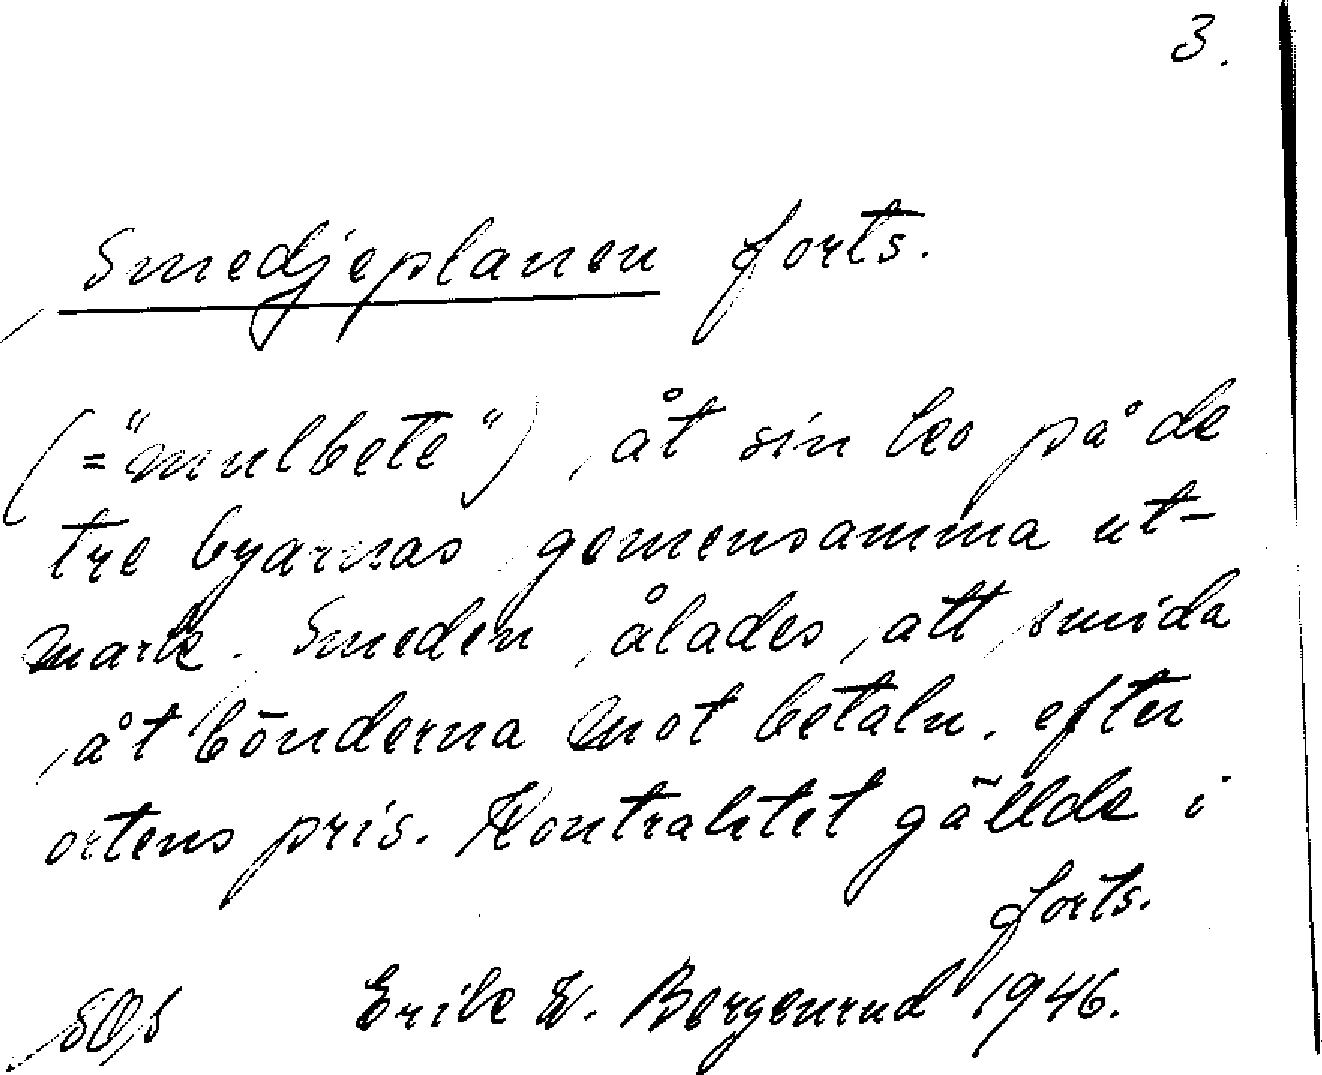 3.
Smedjeplanen forts.
(="mulbete") åt sin ko på de
tre byarnas gemensamma ut-
mark. Smeden ålades att smida
åt bönderna mot betaln. efter
ortens pris. Kontraktet gällde i
forts.
Erik W. Bergenrud 1946.